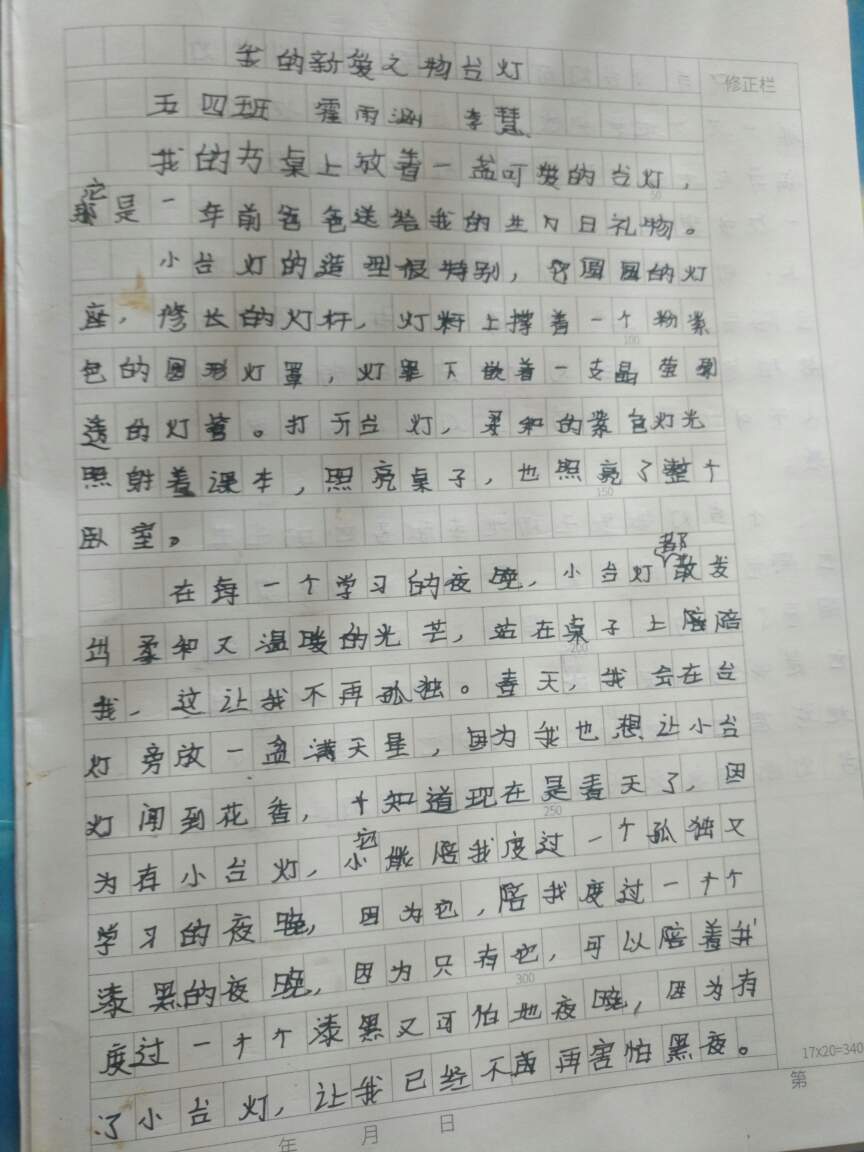 我的新爱之物台灯
修正栏
五四班 霍雨涵 李慧
我的书桌上放着一盏可爱的台灯，
它是一年前爸爸送给我的生日礼物。
50
小台灯的造型很特别，它圆圆的灯
座，修长的灯杆，灯杆上撑着一个粉紫
100
色的圆形灯罩，灯罩下嵌着一支晶莹剔
透的灯管。打开台灯，柔和的紫色灯光
照射着课本，照亮桌子，也照亮了整个
150
卧室。
在每一个学习的夜晚，小台灯都散发
出柔和又温暖的光芒，站在桌子上陪陪
200
我，这让我不再孤独。春天，我会在台
灯旁放一盆满天星，因为我也想让小台
灯闻到花香，知道现在是春天了，因
250
为有小台灯，它陪我度过一个孤独又
学习的夜晚，因为它，陪我度过一个个
漆黑的夜晚，因为只有它，可以陪着我
300
度过一个个漆黑又可怕地夜晚，因为有
了小台灯，让我已经不再害怕黑夜。
17x20=340
年 月 日 第